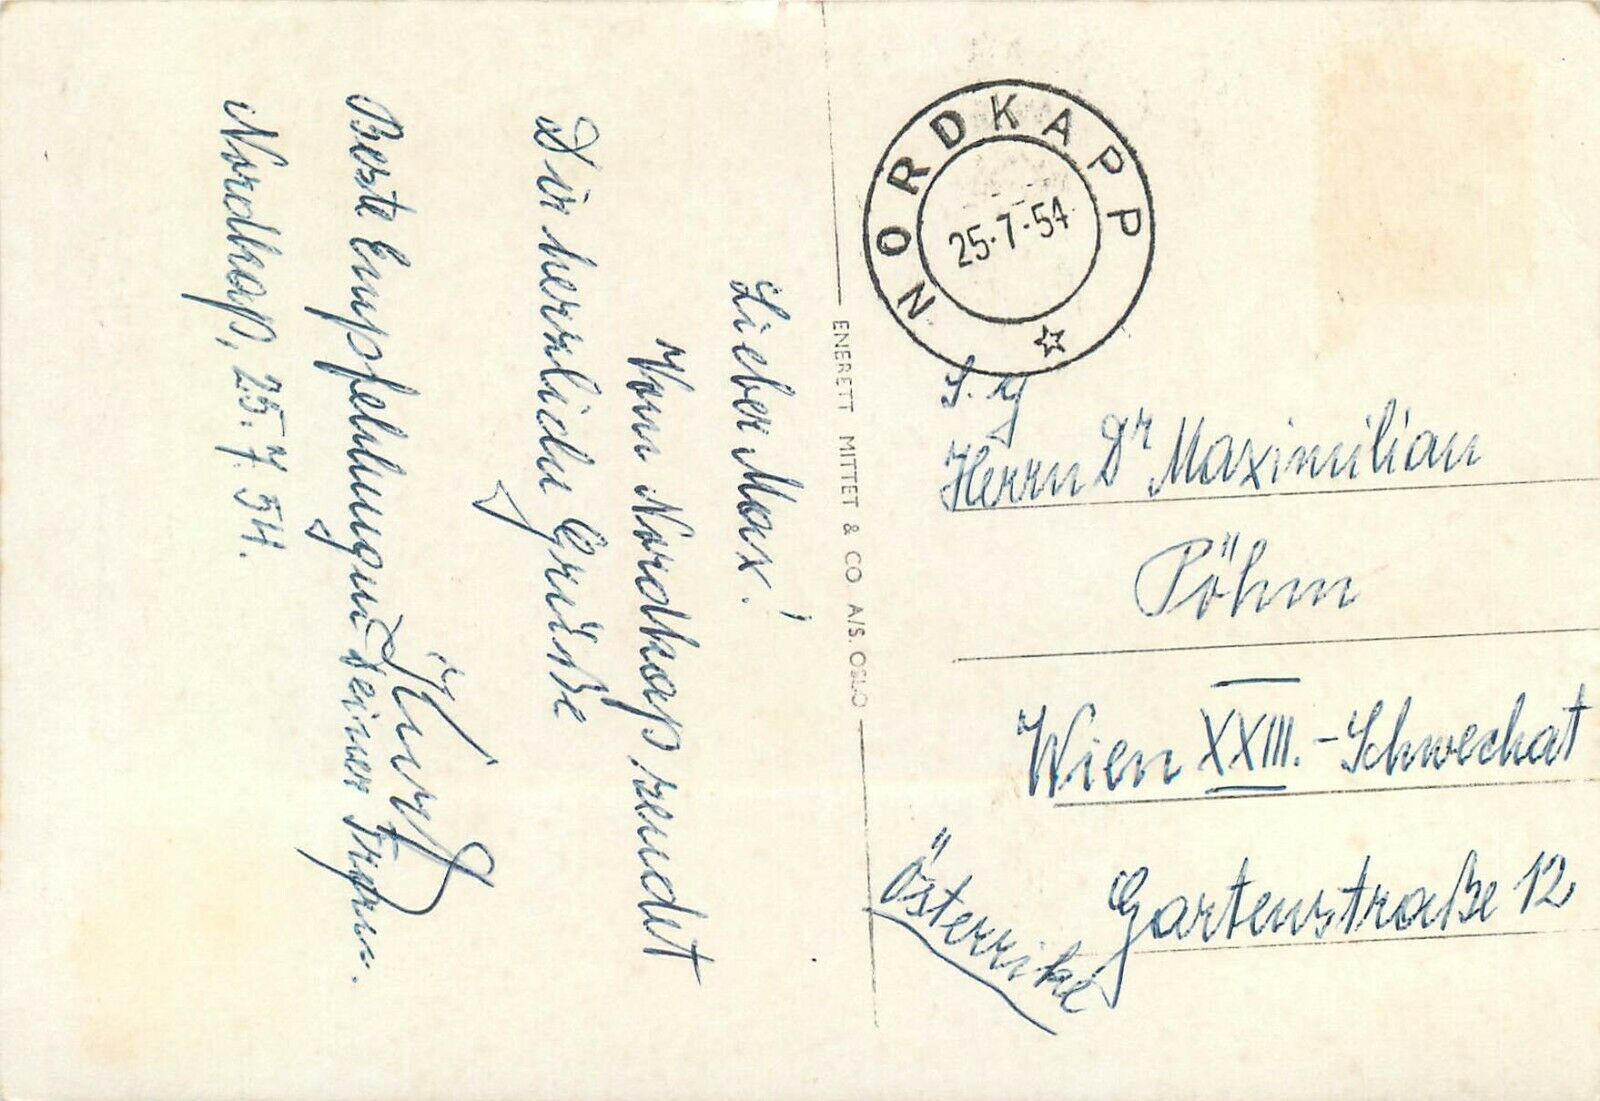 Lieber Max!
Vom Nordkap sendet
Dir herzliche Grüße
Kurt
Beste Empfehlungen Deiner Frau.
Nordkap, 25.7.54.
ENERETT MITTET & CO A/S. OSLO
NORDKAPP
25-7-54
S. g
Herrn Dr Maximilian
Pöhm
Wien XXIII.-Schwechat
Gartenstraße 12
Österrike